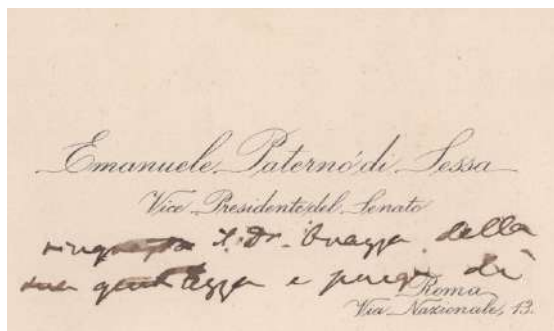 Emanuele Paternò di Sessa
Vice Presidente del Senato
ringrazia il Dr. della
sua gentilezza e di
Roma
Via Nazionale, 13.